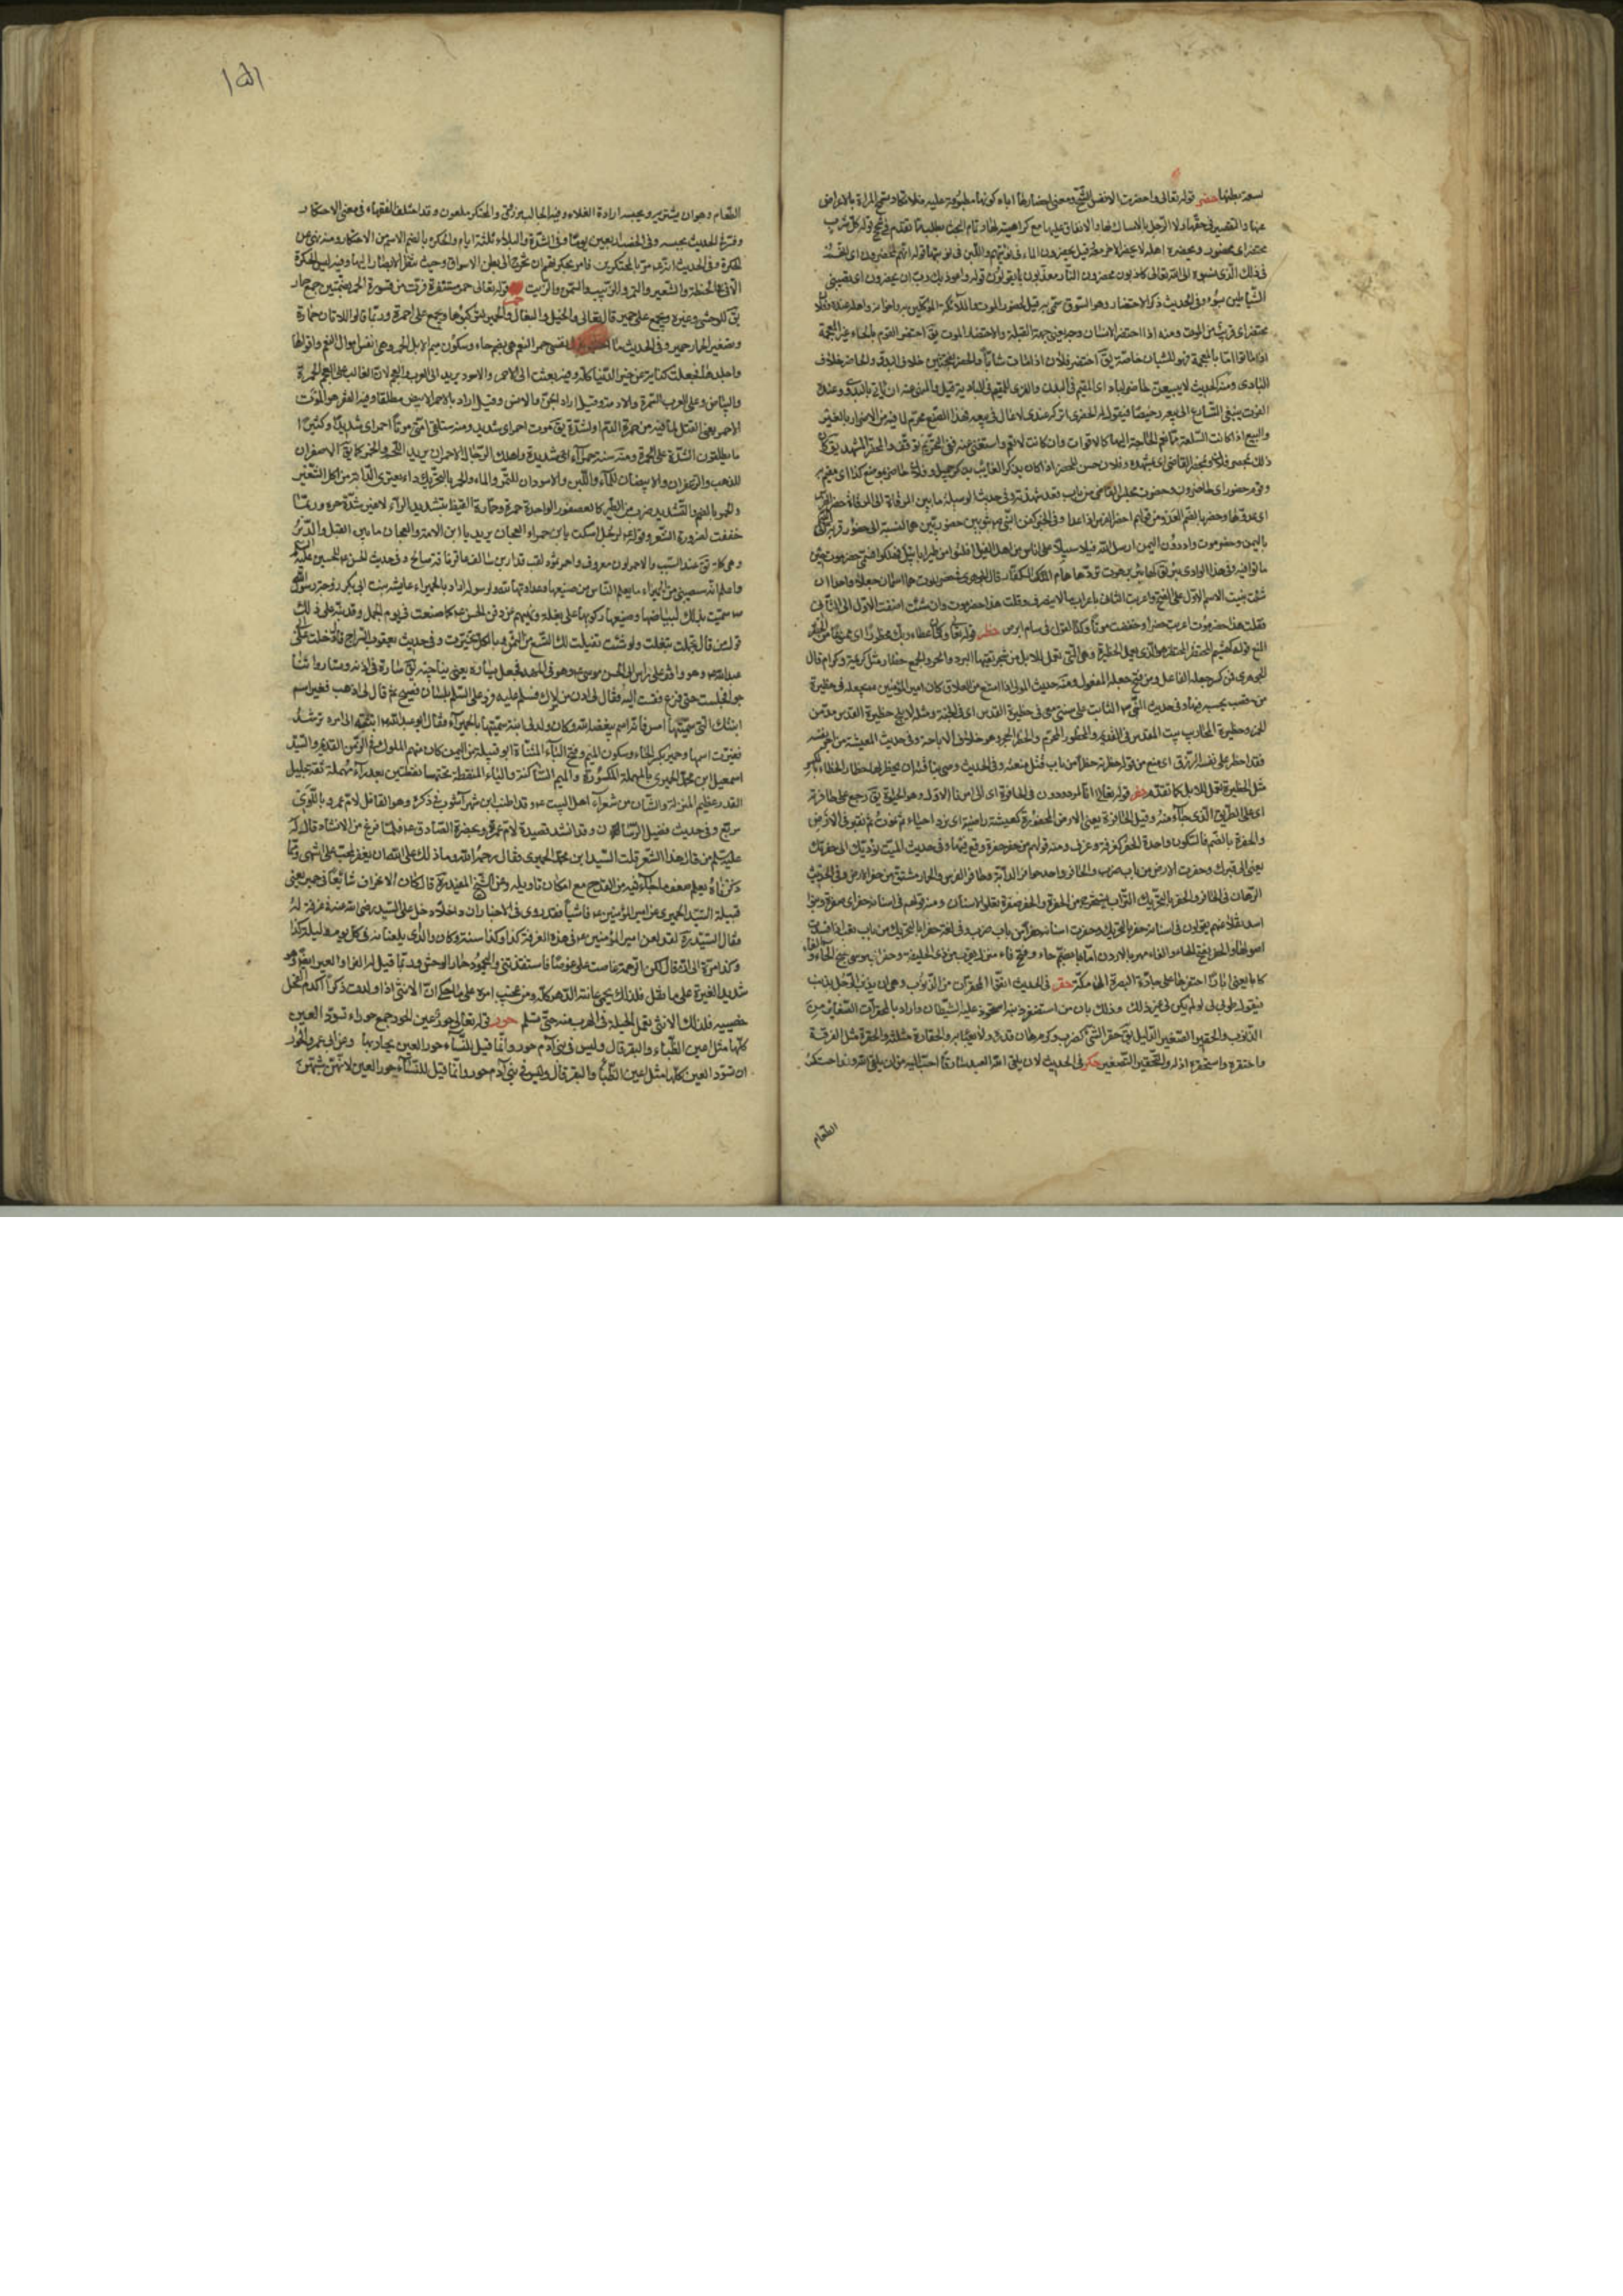 لسعة بطنها حضر قوله تعالى واحضرت الانفس الشح ومعنى احضارها اياه كونها مطبوعة عليه فلا تكاد المراة بالاعراض
عنها والتقصير في حقها ولا الرجل بالامساك لها والانفاق عليها مع كراهيته لها وتمام البحث يطلب مما تقدم في شح قوله كل شرب
محتضر اى محضور يحضره اهله لا يحضر الاخر معه وقيل يحضرون الماء في نوبتهم واللبن في نوبتها قوله انهم لمحضرون
في ذلك الذى نسبوه الى الله تعالى كاذبون محضرون النار معذبون بما يقولون قوله واعوذ بك رب ان يحضرون اى يصيبنى
الشياطين بسوء وفي الحديث ذكر الاحتضار وهو السوق سمى به قيل لحضور الموت والملائكة الموكلين به واخوانه واهله عنده وفلان
محتضر اى قريب من الموت ومنه اذا احتضر الانسان وجه يعنى جهة القبلة والاحتضار الموت يق احتضر القوم بالحاء غير المعجمة
اذا ماتوا اما بالمعجمة فهو للشبان خاصة يق اختضر فلان اذا مات شابا والحضر بفتحتين خلاف البدو والحاضر خلاف
البادى ومنه الحديث لا يبيعن حاضر لباد اى المقيم في المدن والقرى المقيم في البادية قيل والمنهى عنه ان ياتى البدوى وعنده
القوت يبتغى التسارع الى بيعه رخيصا فيقول له الحضرى اتركه عندى لاغالى في بيعه فهذا الصنع محرم لما فيه من الاضرار بالغير
والبيع اذا كانت السلعة مما تعم الحاجة اليها كالاقوات وان كانت لا تعم واستغنى عنه ففي التحريم توقف والمحضر المشهد يق كان
ذلك بمحضر فلان وبمحضر القاضى اى بمشهده وفلان حسن المحضر اذا كان يذكر الغايب بذكر جميل وفلان حاضر بموضع كذا اى مقيم به
وقوم حضور اى حاضرون وحضرت مجلس القاضى من باب قعد شهدته وفي حديث الوسيلة ما بين المرقاة الى المرقاة حضر الفرس
اى عدوها وحضر بالضم العدو من قولهم احضر الفرس اذا عدا
باليمن وحضرموت واد دون اليمن ارسل الله فيه سيلا على اناس من اهل الفيل افلتوا من طير ابابيل فهلكوا فسمى حضرموت حين
ماتوا فيه وفي هذا الوادى بئر يق لها بئر برهوت تردها هام الكفار قال الجوهرى حضرموت هما اسمان جعلا واحدا ان
شئت بنيت الاسم الاول على الفتح واعربت الثانى باعراب ما لا ينصرف وقلت هذا حضرموت وان شئت اضفت الاول الى الثانى
فقلت هذا حضرموت اعربت حضرا وخفضت موتا وكذا القول في سام ابرص حظر قوله تعالى وما كان عطاء ربك محظورا اى ممنوعا من الحظر
المنع قوله كهشيم المحتظر المحتظر هو الذى يعمل الحظيرة وهى التى تعمل للابل من شجر تقيها البرد والحر والجمع حظار مثل كريمة وكرام قال
الجوهرى فمن كسر جعله الفاعل ومن فتح جعله المفعول ومنه حديث المولى اذا امتنع من الطلاق كان امير المؤمنين ع يجعله في حظيرة
من قصب يحبسه فيها وفي حديث النبى ص الثابت على سنتى معى في حظيرة القدس اى في الجنة ومثله لا يلج حظيرة القدس مدمن
الخمر وحظيرة المحاريب بيت المقدس في القديم والمحظور المحرم والحظر الحجر وهو خلاف الاباحة وفي حديث المعيشة من اجر نفسه
فقد حظر على نفسه الرزق اى منع من قوله حظرته حظرا من باب قتل منعته وفي الحديث
مثل الحظيرة تعمل للابل كما تقدم حفر قوله تعالى ائنا لمردودون في الحافرة اى الى امرنا الاول وهو الحيوة يق رجع على حافرته
اى على الطريق الذى جاء منه وقيل الحافرة يعنى الارض المحفورة كعيشة راضية اى نرد احياء ثم نموت ثم نقبر في الارض
والحفرة بالضم فالسكون واحدة الحفر كغرفة وغرف ومنه قولهم من حفر حفرة وقع فيها وفي حديث الميت نؤديك الى حفرتك
يعنى الى قبرك وحفرت الارض من باب ضرب والحافر واحد حوافر الدابة وحافر الفرس والحمار مشتق من حفر الارض وفي الحديث
الرهان في الحافر والحفر بالتحريك التراب يستخرج من الحفرة والحفر صفرة تعلو الاسنان ومنه قولهم في اسنانه حفر
اسد يقولون في اسنانه حفر بالتحريك وحفرت اسنانه حفرا من باب ضرب وفي لغة حفرا بالتحريك من باب تعب اذا فسدت
كانا يعنى اذا احتفرها على جادة البصرة الى مكة حقر في الحديث اتقوا المحقرات من الذنوب وهى ان يذنب الرجل الذنب
فيقول طوبى لى لو لم يكن لى غير ذلك وذلك بان من استصغر ذنبا استحوذ عليه الشيطان واراد بالمحقرات الصغاير من
الذنوب والحقير الصغير الذليل يق حقر الشئ كضرب وكرم هان قدره ولا يعبأ به والحقارة مثلثة والحقرة مثل الفرقة
واحتقره واستحقره اذله والتحقير التصغير حكر في الحديث لان يلقى الله العبد سارقا احب اليه من ان يلقى الله وقد احتكر
الطعام
١٥١
الطعام وهو ان يشتريه ويحبسه ارادة الغلاء وفيه الجالب مرزوق والمحتكر ملعون وقد اختلف الفقهاء في معنى الاحتكار
وفسره الحديث بحبسه وفى الخصب اربعين يوما وفي الشدة والبلاء ثلثة ايام والحكرة بالضم الاسم من الاحتكار ومنه نهى عن
الحكرة وفي الحديث انه ص مر بالمحتكرين فامر بحكرتهم ان تخرج الى بطن الاسواق وحيث تنظر الابصار اليها وفيه ليس الحكرة
الا في الحنطة والشعير والتمر والزبيب والسمن والزيت حمر قوله تعالى حمر مستنفرة فرت من قسورة الحمر بضمتين جمع حمار
يق للوحشى وغيره ويجمع على حمير قال تعالى والخيل والبغال والحمير لتركبوها ويجمع على احمرة وربما قالوا للاتان حمارة
وتصغير الحمار حمير وفي الحديث ما حمر النعم هى بضم حاء وسكون ميم الابل الحمر وهى انفس اموال النعم واقواها
واجلدها فجعلت كناية عن خير الدنيا كله وفيه بعثت الى الاحمر والاسود يريد الى العرب والعجم لان الغالب على العجم الحمرة
والبياض وعلى العرب السمرة والادمة وقيل اراد الجن والانس وقيل اراد بالاحمر الابيض مطلقا وفيه المؤمن هو الموت
الاحمر يعنى القتل لما فيه من حمرة الدم او لشدته يق موت احمر اى شديد ومنه ستلقى امتى موتا احمر اى شديدا وكثيرا
ما يطلقون الشدة على الحمرة ومنه سنة حمراء اى شديدة واهلك الرجال الاحمران يريد اللحم والخمر كما يق الاصفران
للذهب والزعفران والابيضان للماء واللبن والاسودان للتمر والماء والحمر بالتحريك داء يعترى الدابة من اكل الشعير
والحمر بالضم والتشديد ضرب من الطير كالعصفور الواحدة حمرة وحمارة القيظ بتشديد الراء لا غير شدة حره وربما
خففت لضرورة الشعر وقوله ع لرجل اسكت يا ابن حمراء العجان يريد يا ابن الامة والعجان ما بين القبل والدبر
وهى كلمة تق عند السب والاحمر لون معروف واحمر ثمود لقب قدار بن سالف عاقر ناقة صالح وفي حديث الحسن ع والحسين عليه السلام
سميت بذلك لبياضها
قول من قال تجملت تبغلت ولو شئت تفيلت لك التسع من الثمن وبالكل تصرفت وفي حديث يعقوب السراج قال دخلت على
عبد الله ع وهو واقف على راس ابى الحسن موسى ع وهو في المهد فجعل يساره يعنى يناجيه يق ساره في اذنه وتساروا تناجوا
فجلست حتى فرغ فقمت اليه فقال لى ادن من مولاك فسلم عليه فرد على السلم بلسان فصيح ثم قال لى اذهب فغير اسم
ابنتك التى سميتها امس فانه اسم يبغضه الله وكان ولدت لى ابنة سميتها بالحميراء فقال ابو عبد الله ع انته الى امره ترشد
فغيرت اسمها وحمير بكسر الحاء وسكون الميم وفتح الياء المثناة ابو قبيلة من اليمن كان منهم الملوك في الزمن القديم والسيد
اسمعيل ابن محمد الحميرى بالمهملة المكسورة والميم الساكنة والياء المنقطة تحتها نقطتين بعدها راء مهملة ثقة جليل
القدر عظيم المنزلة والشان من شعراء اهل البيت ع وقد اطنب ابن شهر آشوب في ذكره وهو القائل لام عمرو باللوى
مربع وفي حديث فضيل الرسان وقد انشد قصيدة لام عمرو بحضرة الصادق ع فلما فرغ من الانشاد قال له
عليه السلم من قال هذا الشعر قلت السيد ابن محمد الحميرى فقال رحمه الله وما ذلك على الله ان يغفر لمحب على انتهى ومما
ذكرناه يعلم ضعف ما جاء فيه من القدح مع امكان تاويله وعن الشيخ المفيد ره قال كان الانحراف شائعا في حمير يعنى
قبيلة السيد الحميرى عن امير المؤمنين ع فاشيا فقد روى في الاخبار ان داخلا دخل على السيد رضى الله عنه في غرفة له
فقال السيد ره لقد لعن امير المؤمنين ع في هذه الغرفة كذا وكذا سنة وكان والدى يلعنانه في كل يوم وليلة كذا
وكذا مرة ثم انه قال لكن الرحمة غاصت على غوصا فاستنقذتنى واليحمور حمار الوحش
شديد الغيرة على ما نقل فلذلك يحمى عانته الدهر كله ومن عجيب امره على ما حكى ان الانثى اذا ولدت ذكرا كدم الفحل
خصييه فلذلك الانثى تعمل الحيلة في الهرب منه حتى يسلم حور قوله تعالى حور عين الحور جمع حوراء تسود العين
كلها مثل اعين الظباء والبقر قال وليس في بنى آدم حور وانما قيل للنساء حور العين مجاز بها وعن ابى عمرو الحور
ان تسود العين كلها مثل اعين الظباء والبقر قال وليس في بنى آدم حور وانما قيل للنساء حور العين لانهن شبهن